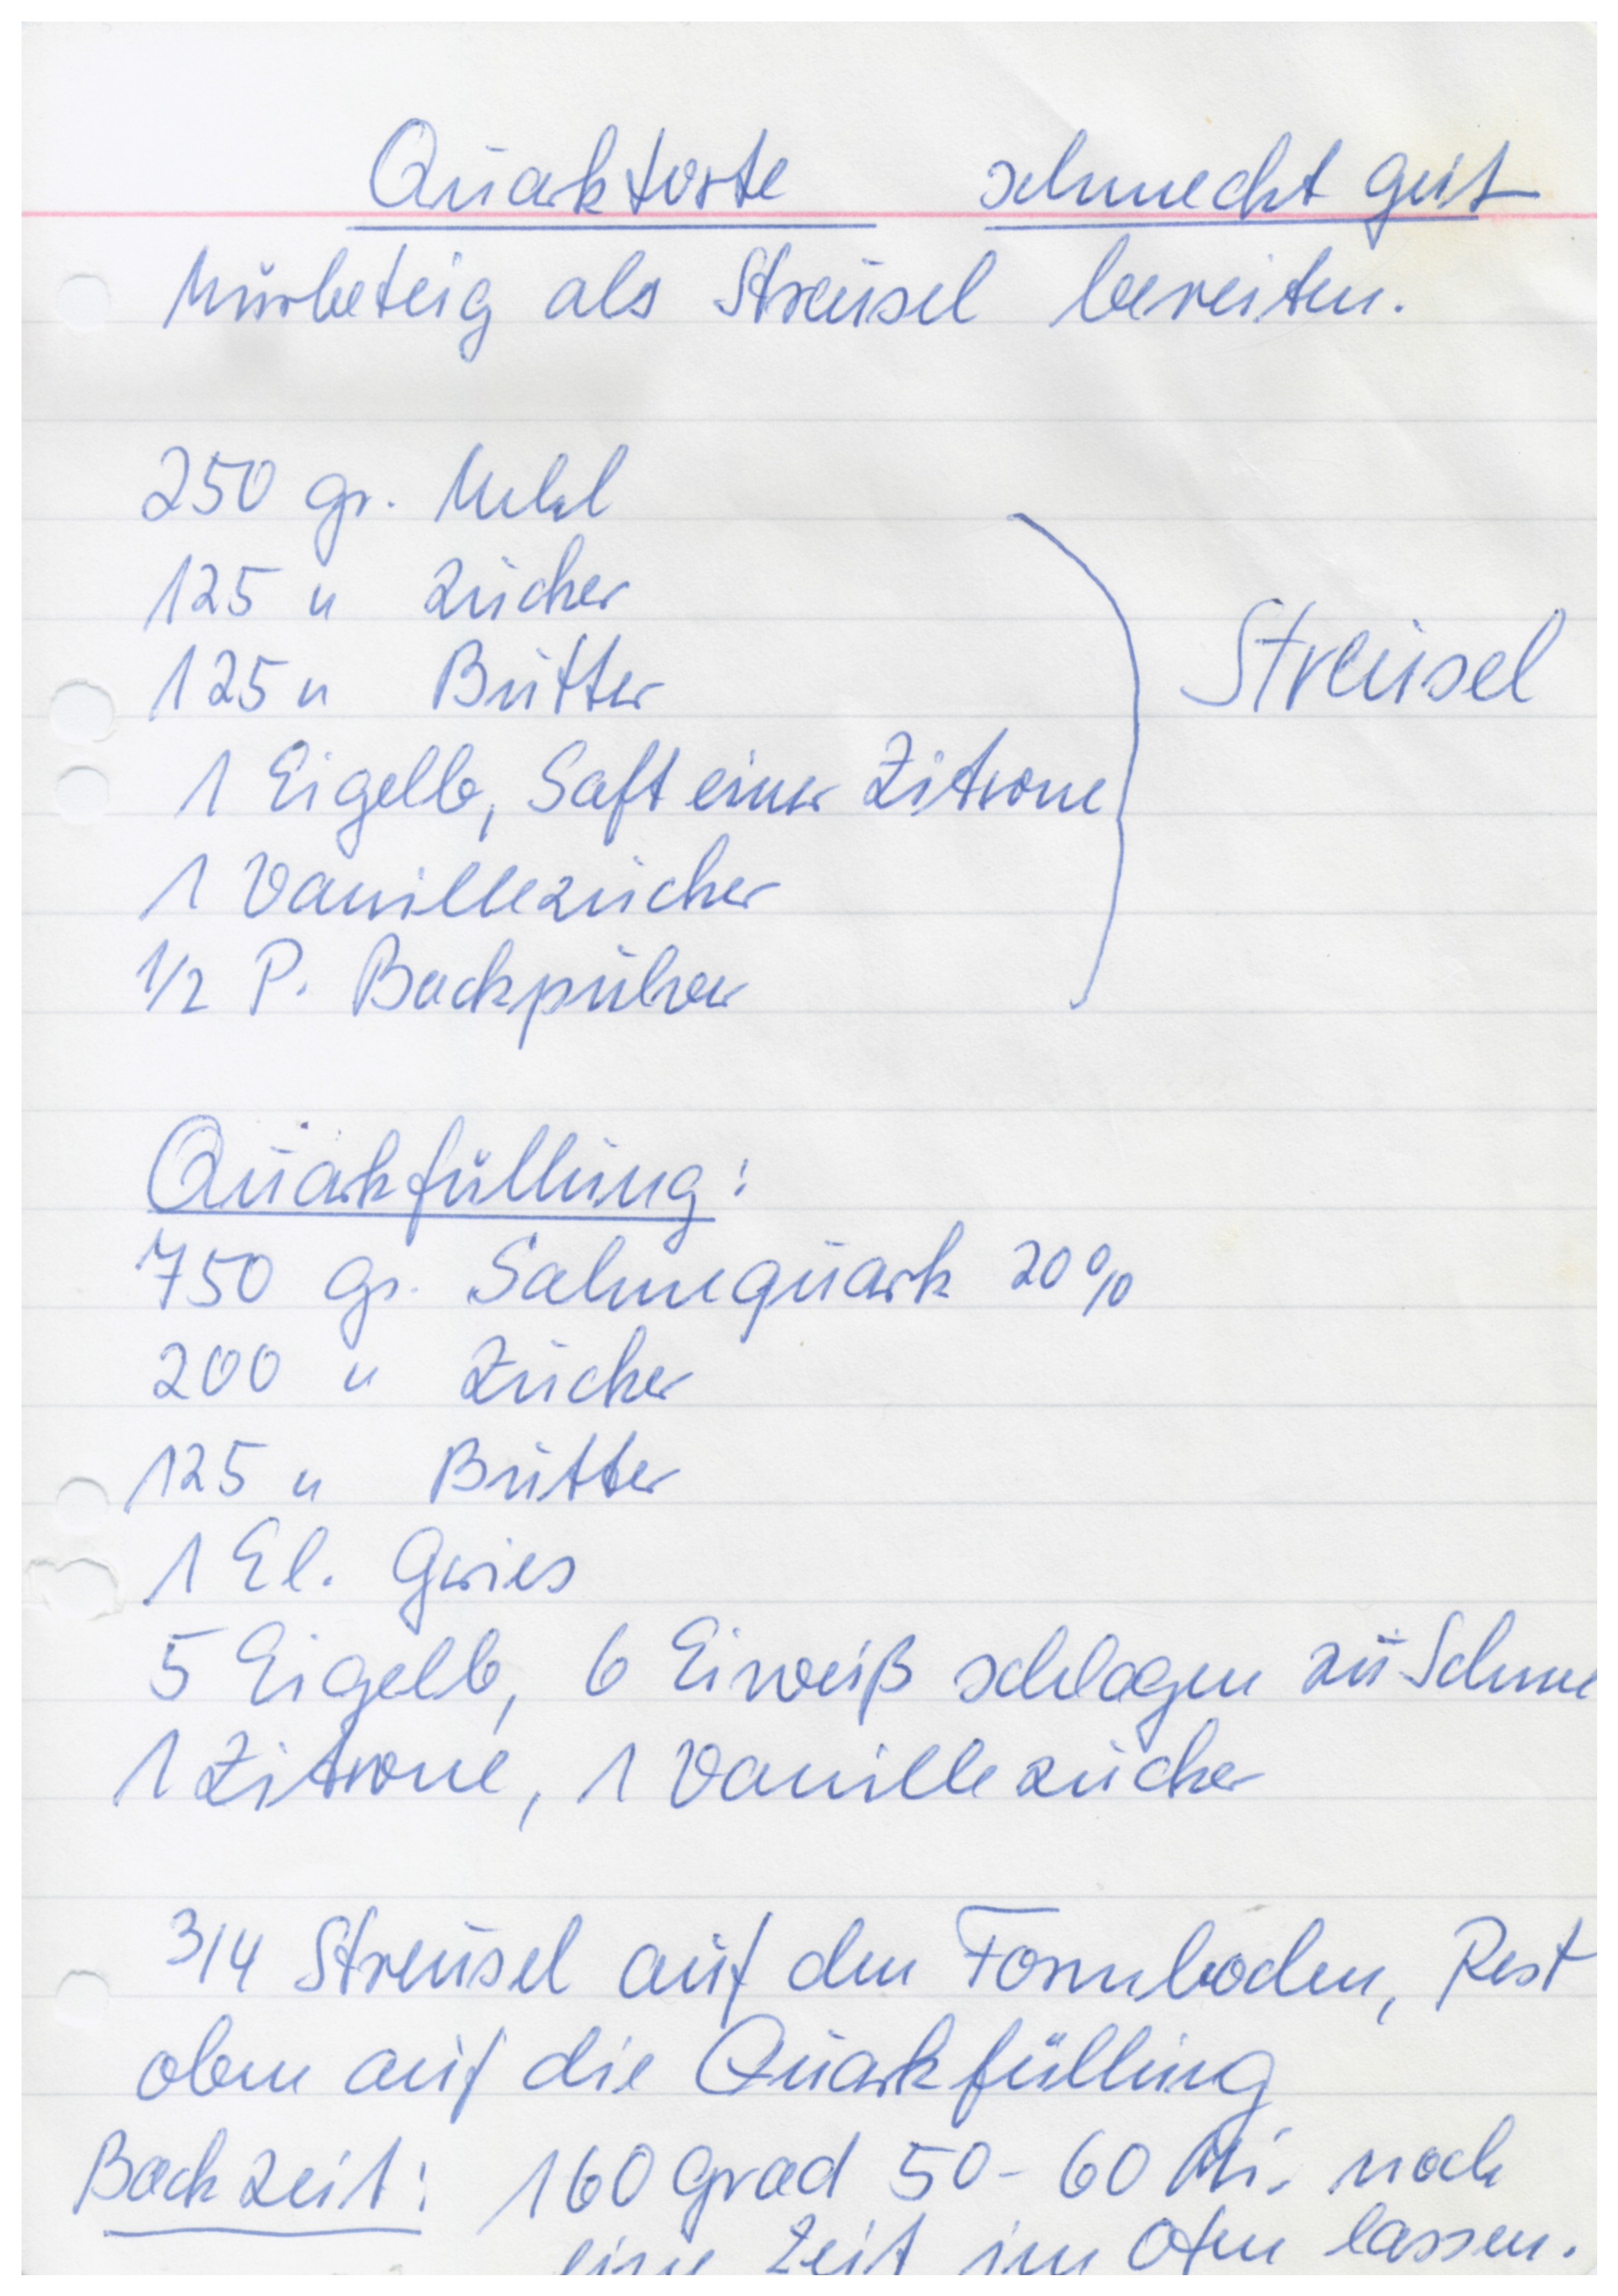 Quarktorte schmeckt gut
Mürbeteig als Streusel bereiten.
250 gr. Mehl
125 " Zucker
125 " Butter
Streusel
1 Eigelb, Saft einer Zitrone
1 Vanillezucker
1/2 P. Backpulver
Quarkfüllung:
750 gr. Sahnequark 20%
200 " Zucker
125 " Butter
1 El. Gries
5 Eigelb, 6 Eiweiß schlagen zu Schne
1 Zitrone, 1 Vanillezucker
3/4 Streusel auf den Formboden, Rest
oben auf die Quarkfülling
Backzeit: 160 Grad 50-60 Mi. noch
eine Zeit im Ofen lassen.